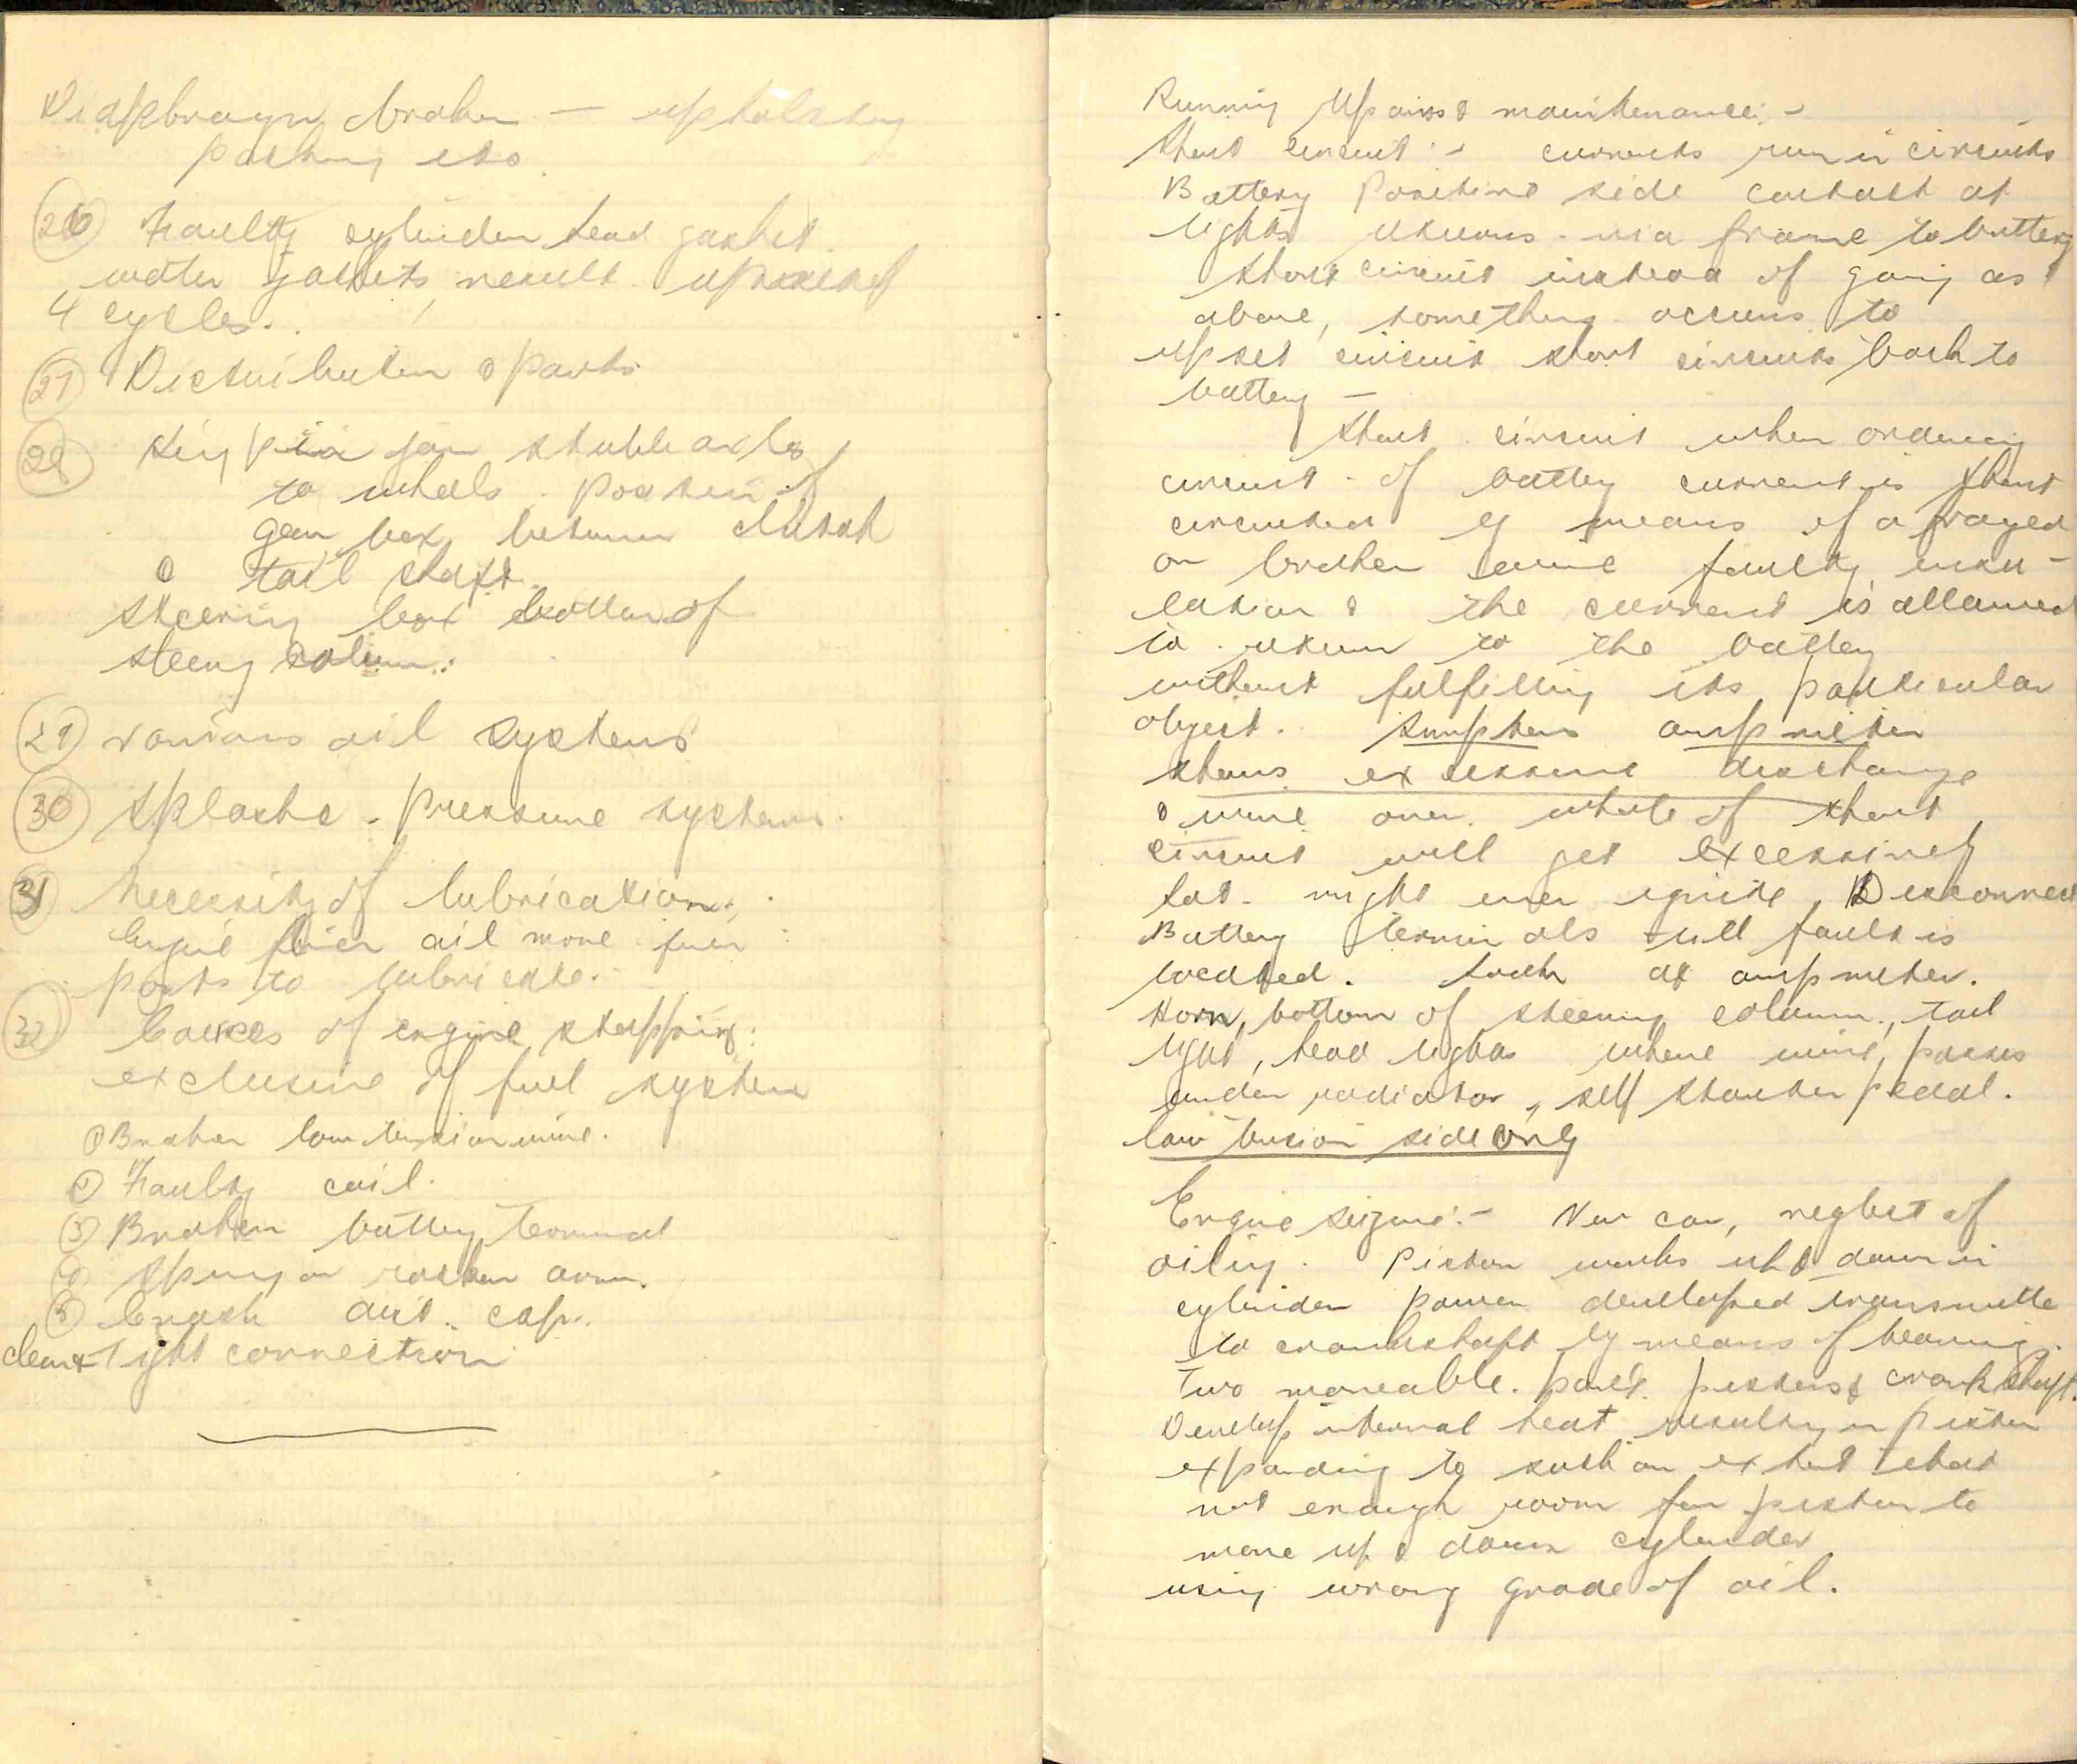 Diaphragm broken — upholstery
packing etc.
26 Faulty cylinder head gasket.
water jackets result upset of
4 cycles.
27 Distributer & parts
28 King pin join stubble axles
to wheels. Position of
gear box between clutch
& tail shaft.
Steering box bottom of
steerg column.
29 various oil systems
30 Splashe - pressure systems.
31 Necessity of lubrication.
Engine oil more
parts to lubricate.
32 Causes of engine stopping:
exclusive of fuel system
① Broken low tension wire.
② Faulty coil.
③ Broken battery terminal
④ Spring on rocker arm.
⑤ Crack dist. cap.
clean & tight connection
Running Repairs & maintenance: -
Short circuit: - currents run in circuits
Battery Positive side contact at
lights returns via frame to battery
short circuit instead of going as
above, something occurs to
upset circuit short circuits back to
battery —
Short circuit when ordinary
circuit of battery current is short
circuited by means of a frayed
or broken wire faulty insu-
lation & the current is allowed
to return to the battery
without fulfilling its particular
object. Symptoms ampmeter
shows excessive discharge
& wire over whole of short
circuit will get excessively
hot. might even ignite. Disconnect
Battery terminals till fault is
located. Look at ampmeter.
Horn, bottom of steering column, tail
light, head lights where wire passes
under radiator, self starter pedal.
low tension side only
Engine seizure: - New car, neglect of
oiling. Piston works up & down in
cylinder power developed transmitte
to crankshaft by means of bearing.
Two moveable parts pistons & crankshaft.
Develop internal heat resulting in piston
expanding to such an extent that
not enough room for piston to
move up & down cylinder
using wrong grade of oil.